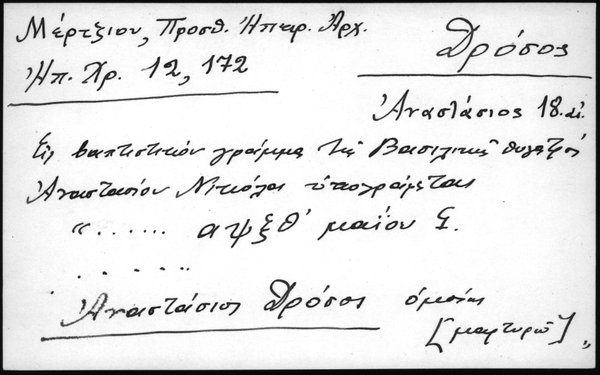 Μέρτζιου, Προσθ. Ἠπειρ. Ἀρχ.
Ἠπ. Χρ. 12, 172
Δρόσος
Ἀναστάσιος 18. αἰ.
Εἰς βαπτιστικὸν γράμμα τῆς Βασιλικῆς θυγατρὸς
Ἀναστασίου Νικόλα ὑπογράφεται
“ . . . . . . αψξθ΄ μαΐου
. . . . . .
Ἀναστάσιος Δρόσος ὁμοίως
[μαρτυρῶ] „